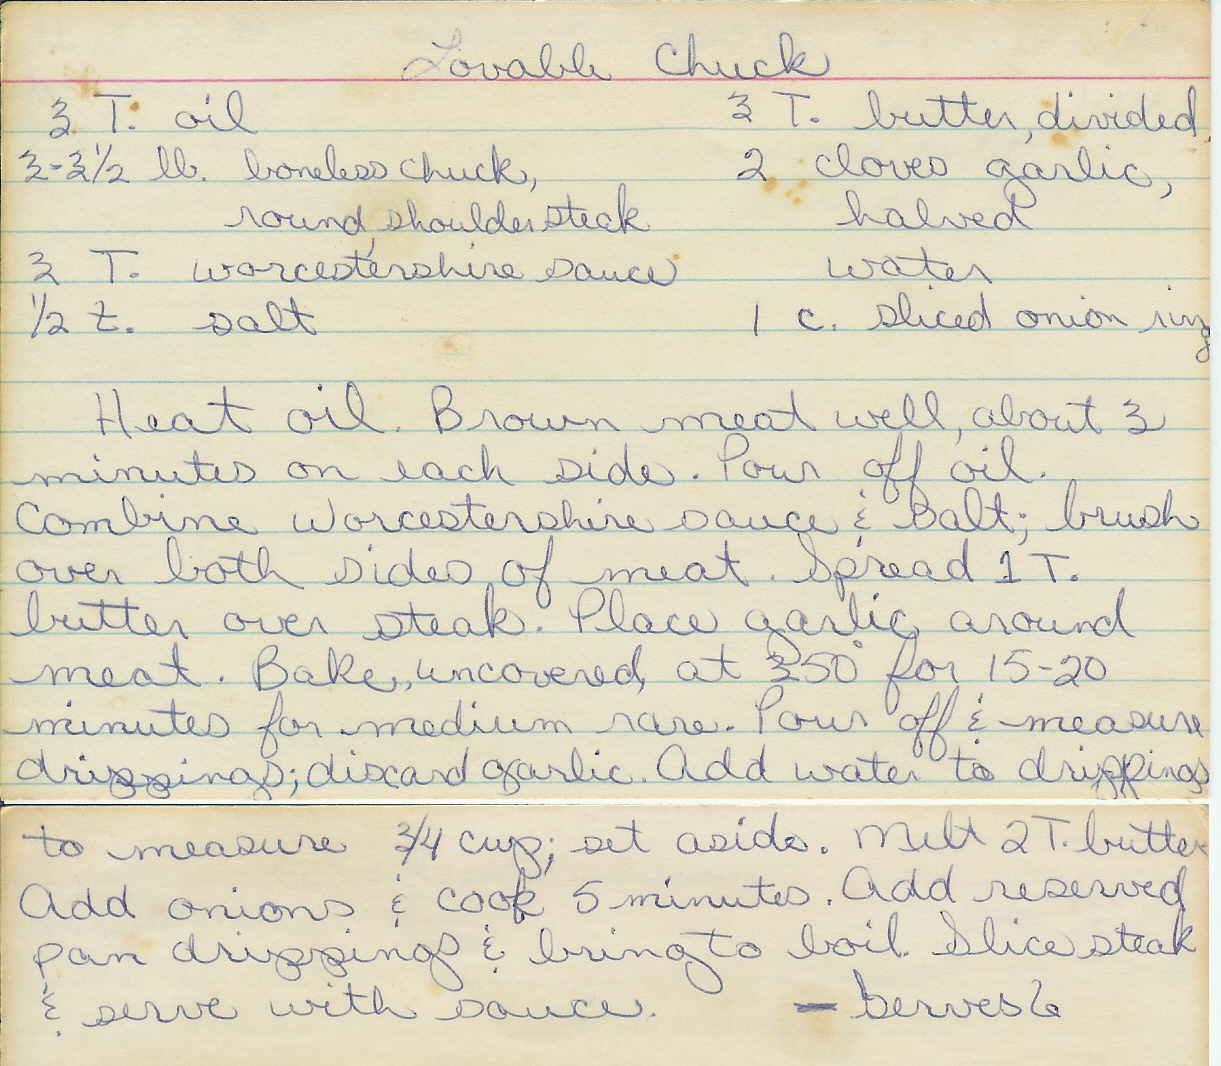 Lovable Chuck
3 T. oil
3-3 1/2 lb. boneless chuck,
round, shoulder steak
3 T. worcestershire sauce
1/2 t. salt
3 T. butter, divided
2 cloves garlic,
halved
water
1 c. sliced onion ring
Heat oil. Brown meat well, about 3
minutes on each side. Pour off oil.
Combine Worcestershire sauce & Salt; brush
over both sides of meat. Spread 1 T.
butter over steak. Place garlic around
meat. Bake, uncovered, at 350° for 15-20
minutes for medium rare. Pour off & measure
drippings; discard garlic. Add water to drippings
to measure 3/4 cup; set aside. Melt 2 T. butter
Add onions & cook 5 minutes. Add reserved
pan drippings & bring to boil. Slice steak
& serve with sauce. - Serves 6